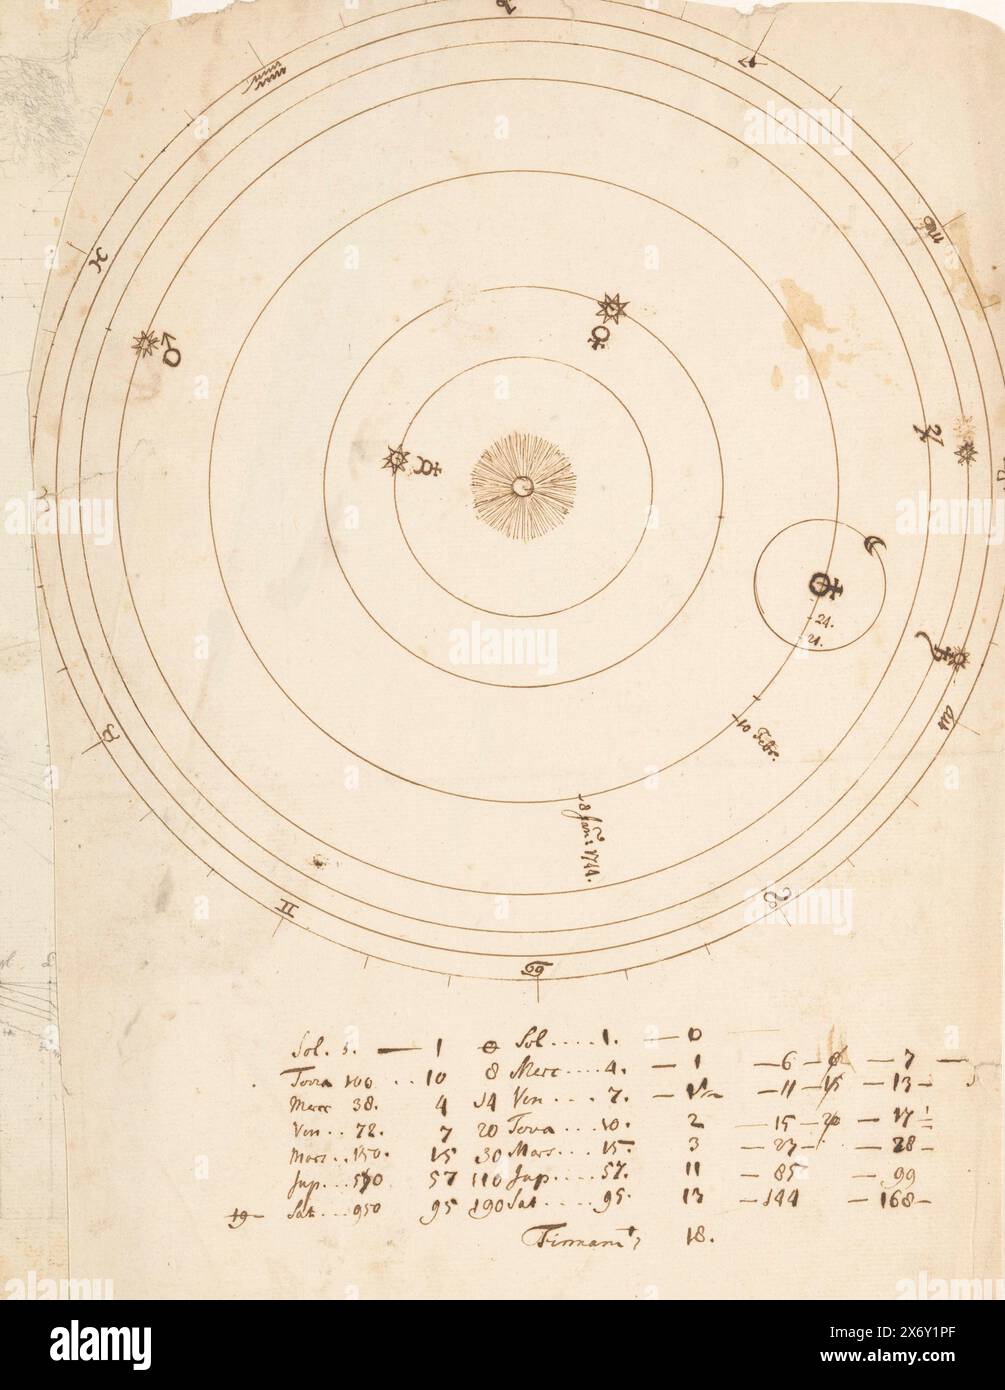 ♑
♐
♒
♏
♓
♂
♀
☿
♃
♄
24.
21.
10 Febr.
8 Janr: 1744.
♉
♊
♋
♌
Sol. 1. — 1 0 Sol .... 1. — 0
Terra 100 .. 10 8 Merc .... 4. — 1 — 6 — — 7 —
Merc 38. 4 14 Ven .... 7. — — 11 — 15 — 13 —
Ven .. 72. 7 20 Terra .... 10. 2 — 15 — 20 — 17 ½
Mars .. 150. 15 30 Mars .... 15. 3 — 27 — 28 —
Jup ... 570 57 110 Jup .... 57. 11 — 85 — 99
19 Sat ... 950 95 190 Sat ..... 95. 13 — 144 — 168 —
Firmamt 18.
alamy
Image ID: 2X6Y1PF
www.alamy.com